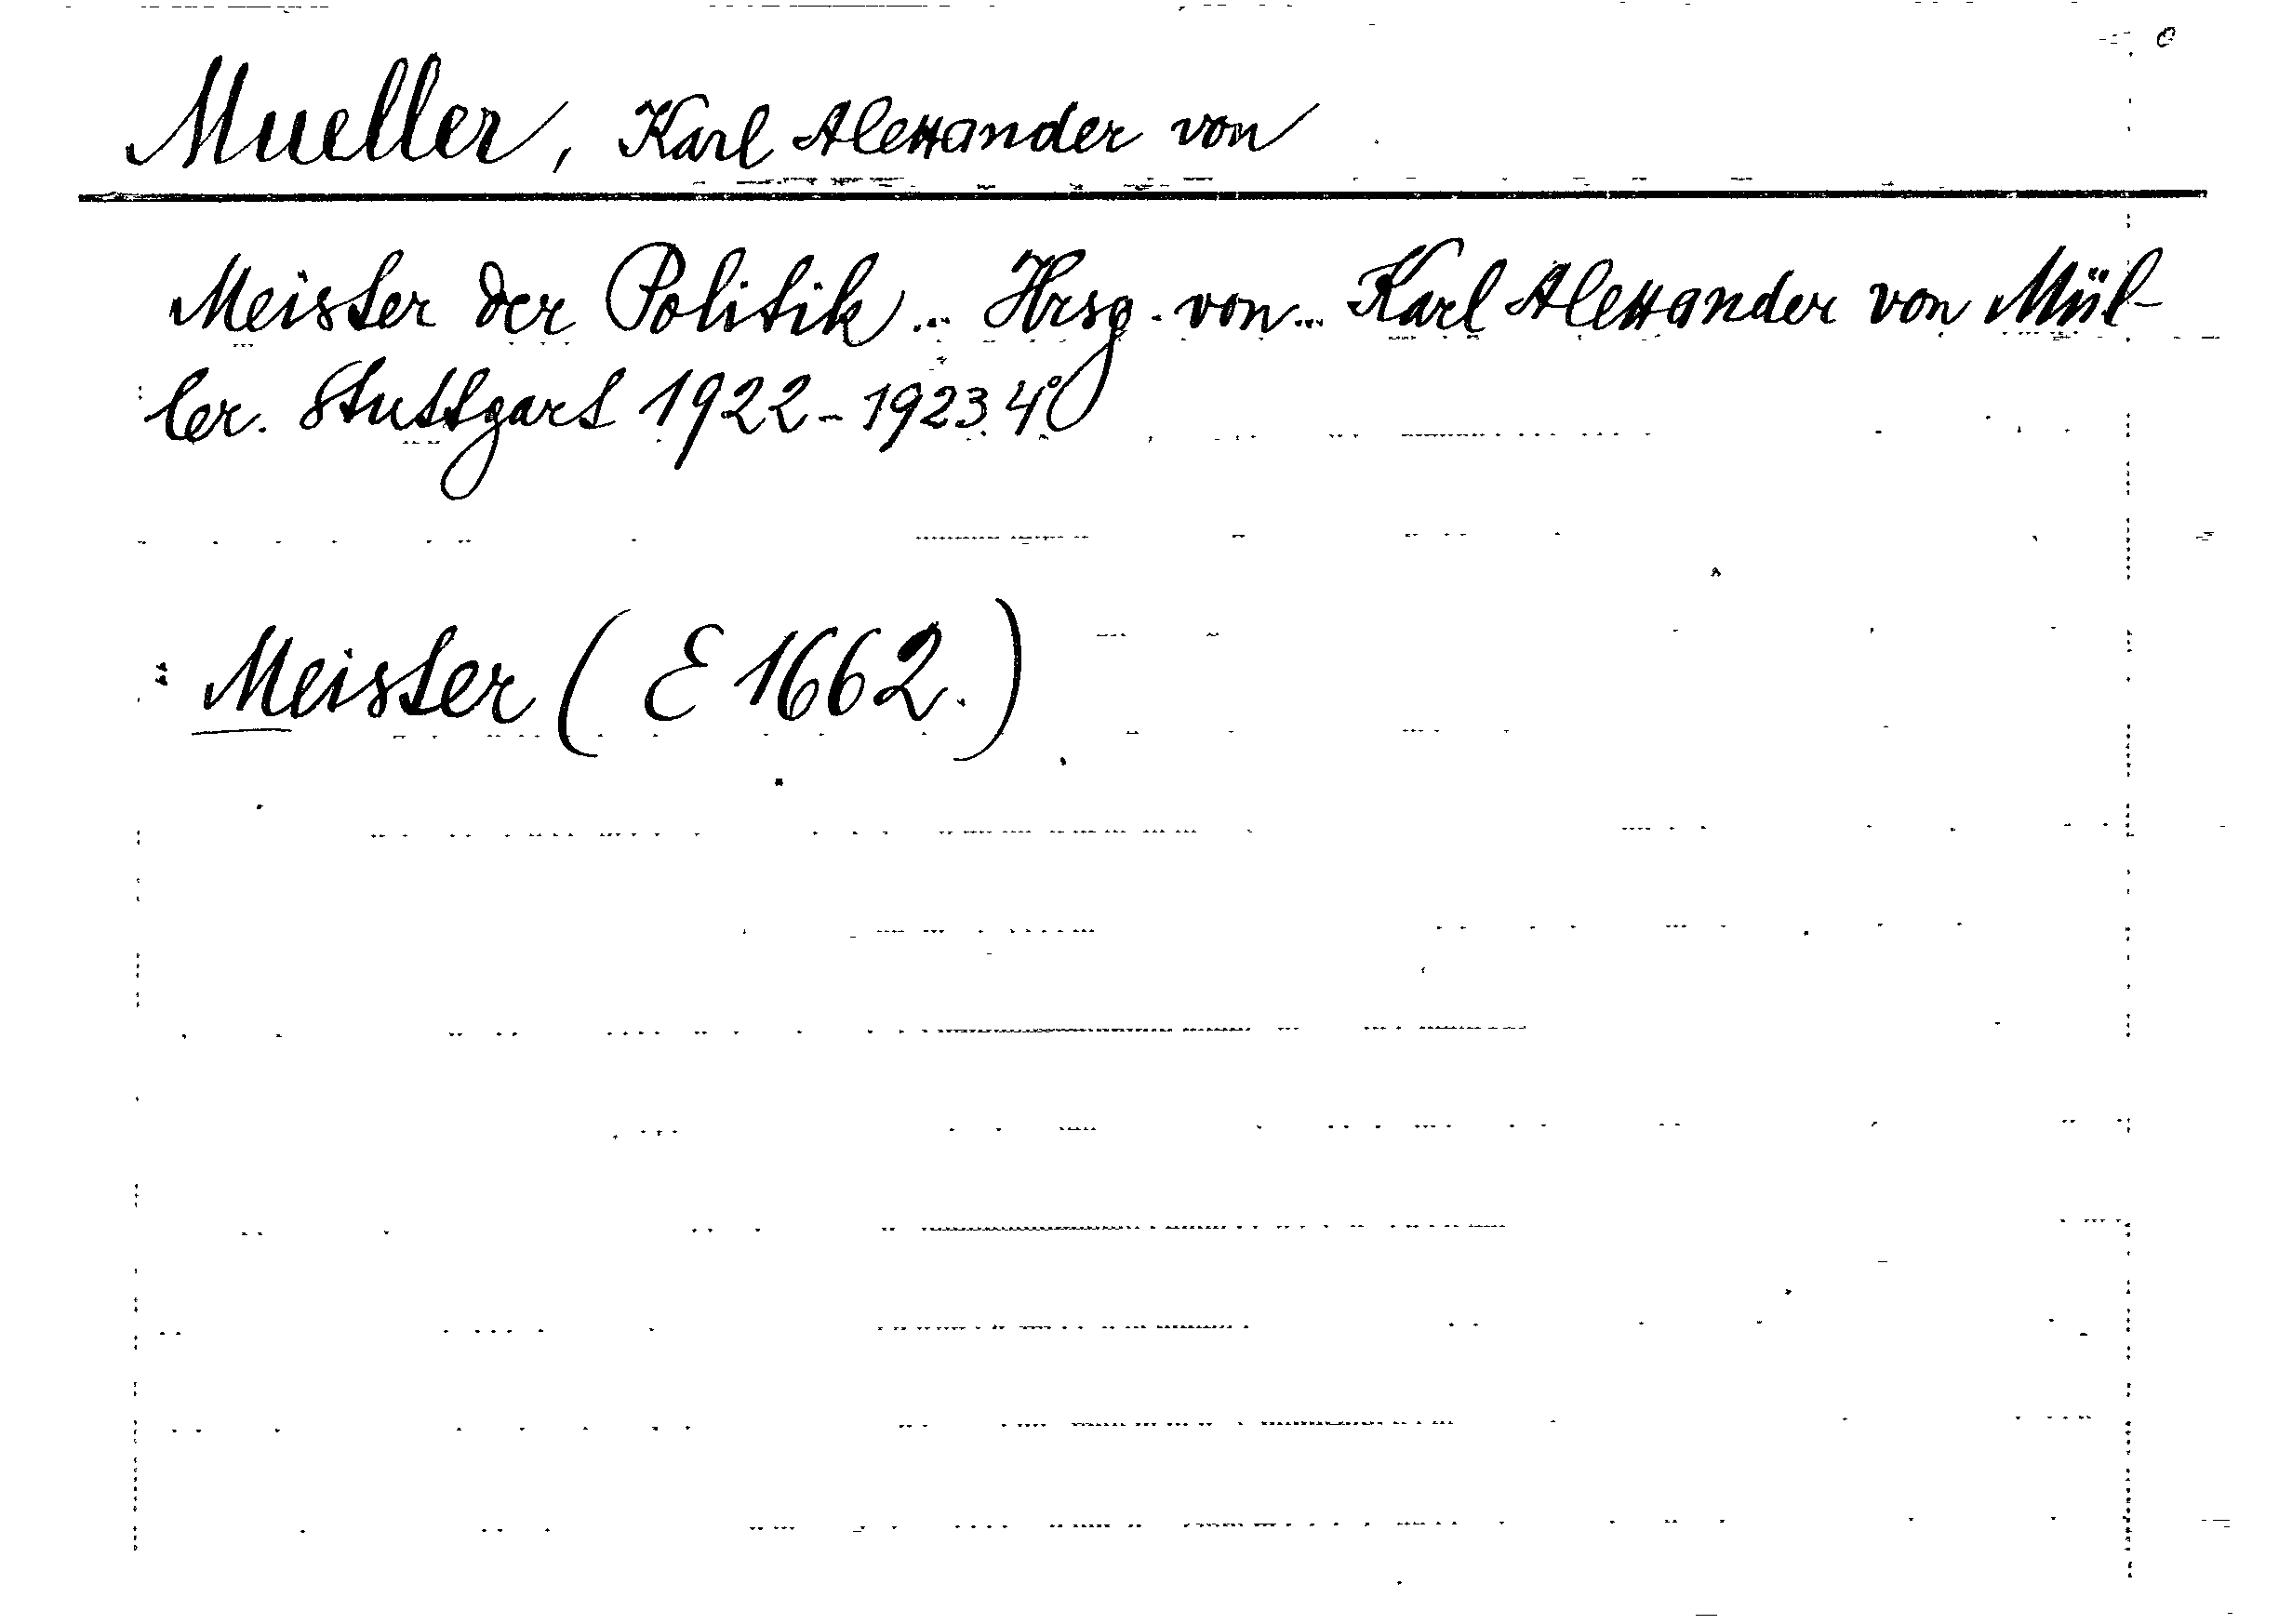 Mueller, Karl Alexander von
Meister der Politik... Hrsg. von... Karl Alexander von Mül-
ler. Stuttgart 1922-1923. 4°
: Meister (E 1662.)